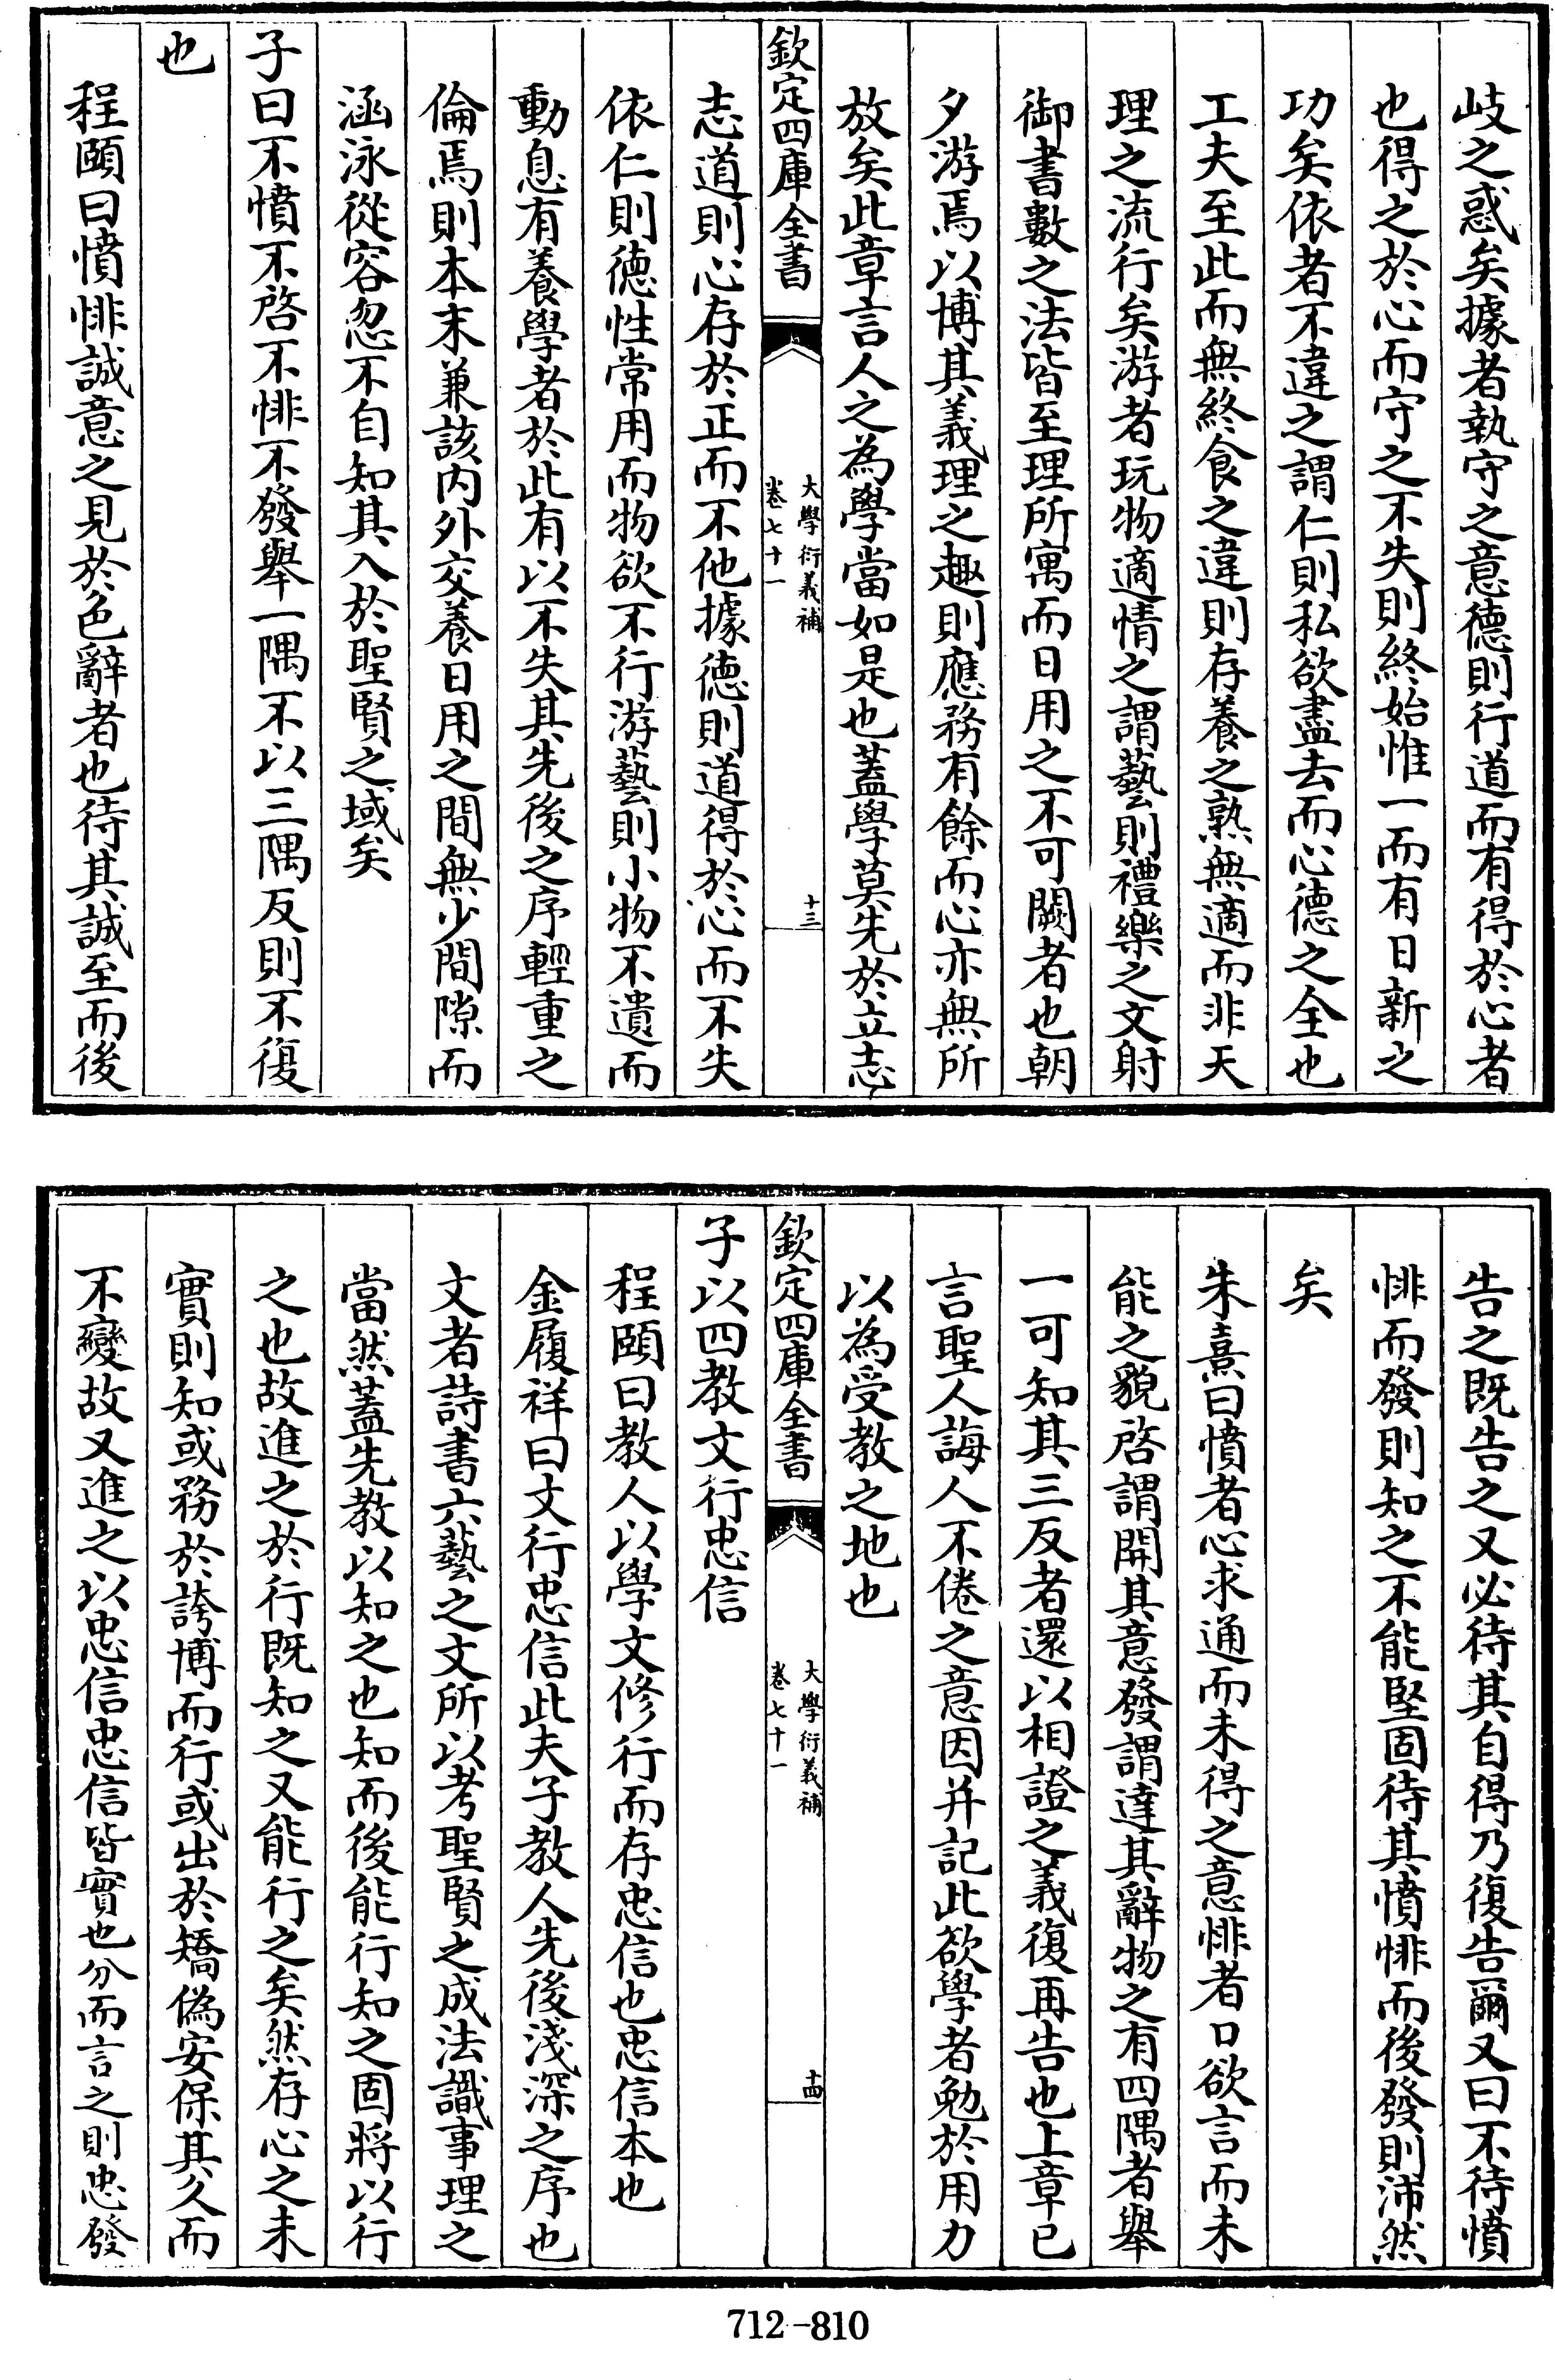 岐之惑矣據者執守之意德則行道而有得於心者
也得之於心而守之不失則終始惟一而有日新之
功矣依者不違之謂仁則私欲盡去而心德之全也
工夫至此而無終食之違則存養之熟無適而非天
理之流行矣游者玩物適情之謂藝則禮樂之文射
御書數之法皆至理所寓而日用之不可闕者也朝
夕游焉以博其義理之趣則應務有餘而心亦無所
放矣此章言人之為學當如是也蓋學莫先於立志
欽定四庫全書
大學衍義補
卷七十一
十三
志道則心存於正而不他據德則道得於心而不失
依仁則德性常用而物欲不行游藝則小物不遺而
動息有養學者於此有以不失其先後之序輕重之
倫焉則本末兼該内外交養日用之間無少間隙而
涵泳從容忽不自知其入於聖賢之域矣
子曰不憤不啓不悱不發舉一隅不以三隅反則不復
也
程頤曰憤悱誠意之見於色辭者也待其誠至而後
告之既告之又必待其自得乃復告爾又曰不待憤
悱而發則知之不能堅固待其憤悱而後發則沛然
矣
朱熹曰憤者心求通而未得之意悱者口欲言而未
能之貌啓謂開其意發謂達其辭物之有四隅者舉
一可知其三反者還以相證之義復再告也上章已
言聖人誨人不倦之意因并記此欲學者勉於用力
以為受教之地也
欽定四庫全書
大學衍義補
卷七十一
十四
子以四教文行忠信
程頤曰教人以學文修行而存忠信也忠信本也
金履祥曰文行忠信此夫子教人先後淺深之序也
文者詩書六藝之文所以考聖賢之成法識事理之
當然蓋先教以知之也知而後能行知之固將以行
之也故進之於行既知之又能行之矣然存心之未
實則知或務於誇博而行或出於矯偽安保其久而
不變故又進之以忠信忠信皆實也分而言之則忠發
712-810